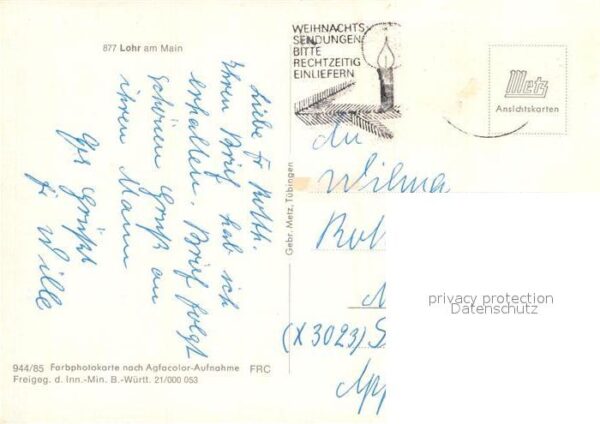 877 Lohr am Main
Liebe Fr Roth.
Ihren Brief hab ich
erhalten. Brief folgt
schönen Gruß an
ihren Mann
Es Grüßt
Fr Wille
944/85 Farbphotokarte nach Agfacolor-Aufnahme FRC
Freigeg. d. Inn.-Min. B.-Württ. 21/000 053
Gebr. Metz, Tübingen
WEIHNACHTS-
SENDUNGEN
BITTE
RECHTZEITIG
EINLIEFERN
Metz
Ansichtskarten
An
Wilma
(X3023)
privacy protection
Datenschutz